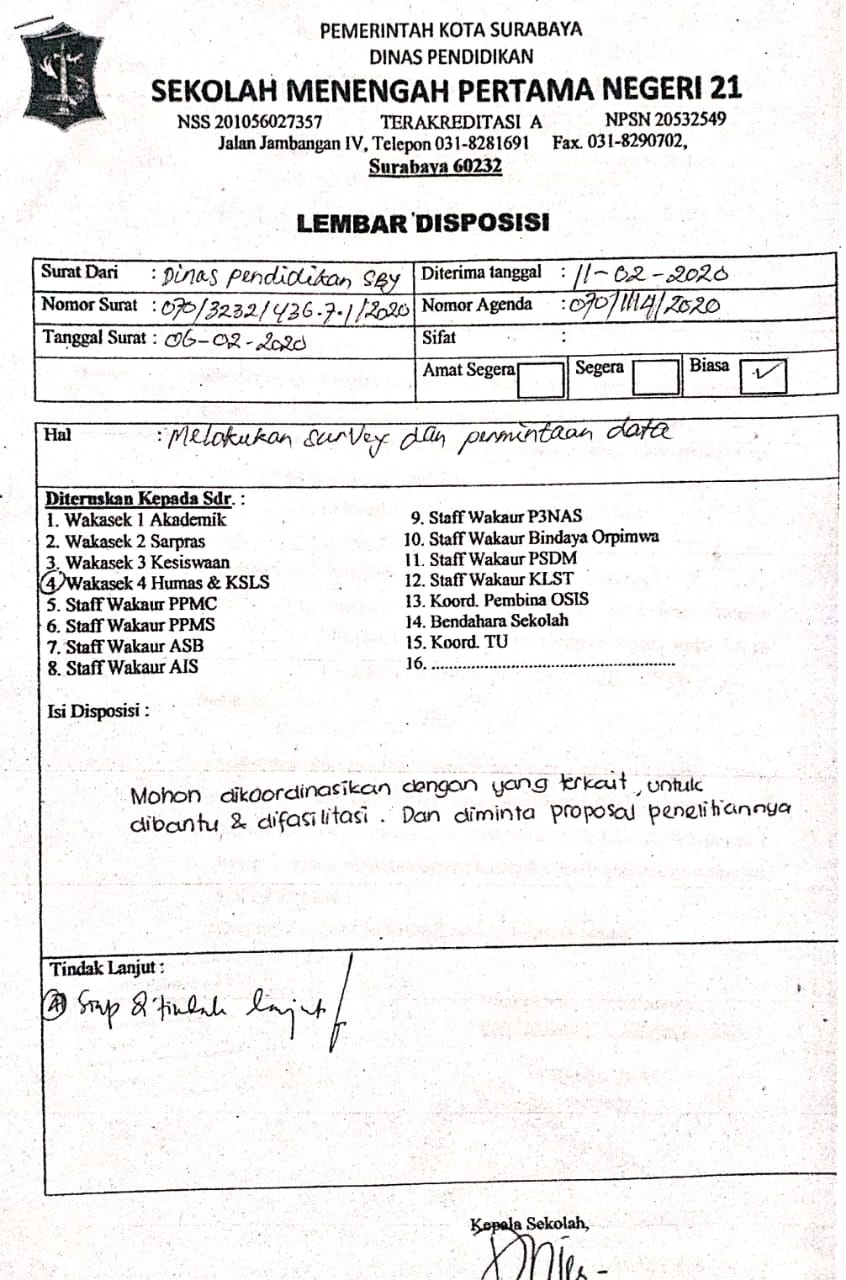 PEMERINTAH KOTA SURABAYA
DINAS PENDIDIKAN
SEKOLAH MENENGAH PERTAMA NEGERI 21
NSS 201056027357 TERAKREDITASI A NPSN 20532549
Jalan Jambangan IV, Telepon 031-8281691 Fax. 031-8290702,
Surabaya 60232
LEMBAR DISPOSISI
Surat Dari : Dinas Pendidikan SBY
Diterima tanggal : 11-02-2020
Nomor Surat : 070/3232/436.7.1/2020
Nomor Agenda : 070/1114/2020
Tanggal Surat : 06-02-2020
Sifat :
Amat Segera Segera Biasa ✓
Hal : Melakukan survey dan permintaan data
Diteruskan Kepada Sdr. :
1. Wakasek 1 Akademik
2. Wakasek 2 Sarpras
3. Wakasek 3 Kesiswaan
4 Wakasek 4 Humas & KSLS
5. Staff Wakaur PPMC
6. Staff Wakaur PPMS
7. Staff Wakaur ASB
8. Staff Wakaur AIS
9. Staff Wakaur P3NAS
10. Staff Wakaur Bindaya Orpimwa
11. Staff Wakaur PSDM
12. Staff Wakaur KLST
13. Koord. Pembina OSIS
14. Bendahara Sekolah
15. Koord. TU
16. ..........................................................
Isi Disposisi :
Mohon dikoordinasikan dengan yang terkait, untuk
dibantu & difasilitasi. Dan diminta proposal penelitiannya
Tindak Lanjut :
Siap ditindak lanjut
Kepala Sekolah,